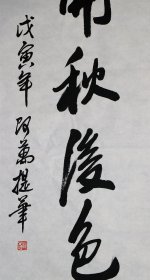 秋後色
戊寅年 阿萬提筆